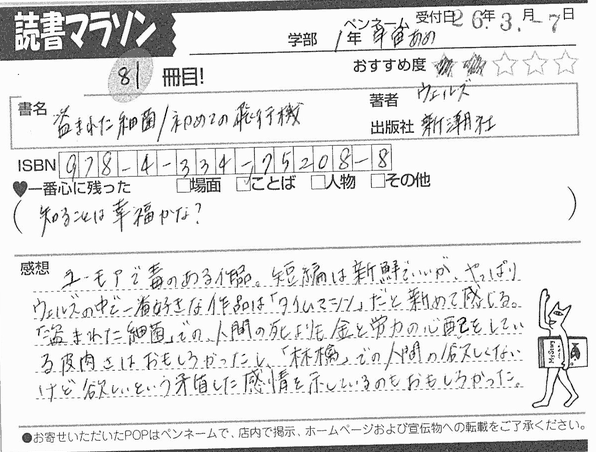 読書マラソン
学部 1年 ペンネーム 草宙あめ 受付日 26年 3月 -7日
81 冊目!
おすすめ度 ★★☆☆☆
書名 盗まれた細菌/初めての飛行機
著者 ウェルズ
出版社 新潮社
ISBN 978-4-334-75208-8
♥一番心に残った □場面 ☑ことば □人物 □その他
(知ることは幸福かな?)
感想 ユーモアで毒のある作品。短編は新鮮でいいが、やっぱり
ウェルズの中で一番好きな作品は「タイムマシン」だと新めて感じる。
「盗まれた細菌」での、人間の死よりも金と労力の心配をしてい
る皮肉さはおもしろかったし、「林檎」での人間の欲しくない
けど欲しいという矛盾した感情を示しているのもおもしろかった。
●お寄せいただいたPOPはペンネームで、店内で掲示、ホームページおよび宣伝物への転載をご了承ください。